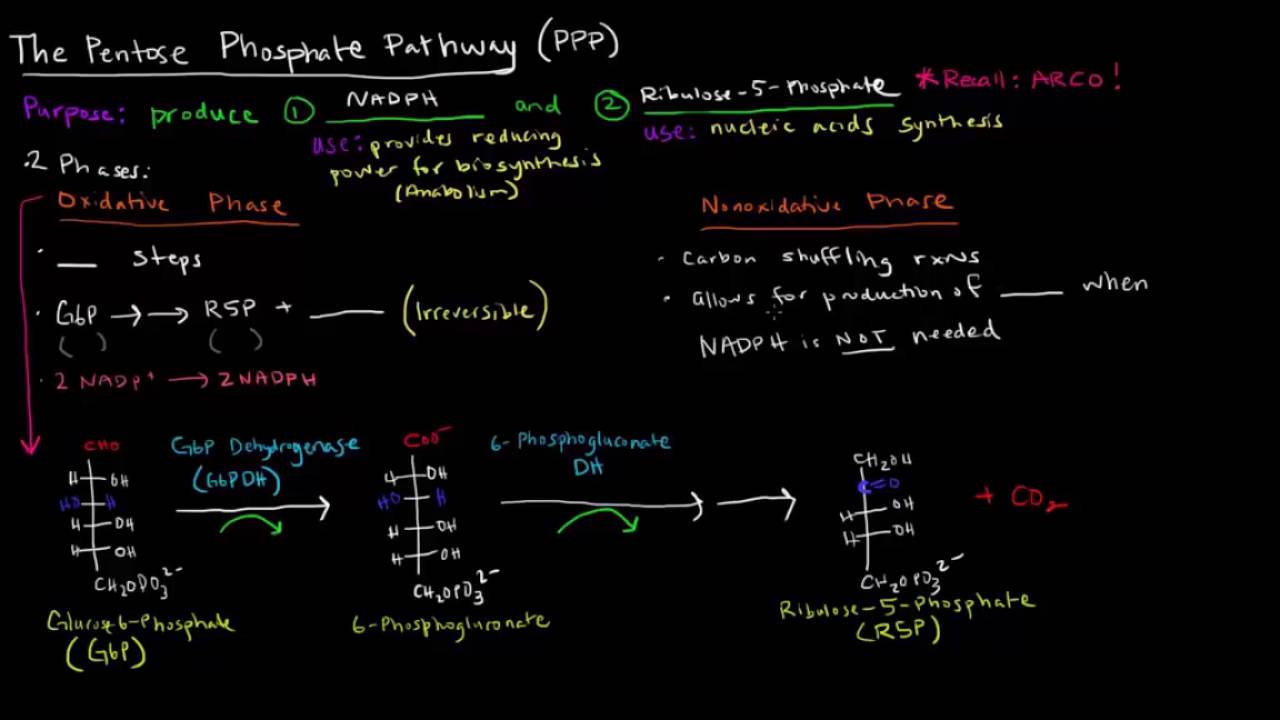 The Pentose Phosphate Pathway (PPP)
Purpose: produce ① NADPH and ② Ribulose-5-Phosphate *Recall: ARCO!
use: provides reducing power for biosynthesis (Anabolism)
use: nucleic acids synthesis
·2 Phases:
Oxidative Phase
· __ Steps
· G6P →→ R5P + ____ (Irreversible)
( ) ( )
· 2 NADP+ → 2NADPH
Nonoxidative Phase
· Carbon shuffling rxns
· allows for production of ____ when
NADPH is NOT needed
CHO
H OH
HO H
H OH
H OH
CH2OPO3 2-
Glucose-6-Phosphate
(G6P)
G6P Dehydrogenase
(G6PDH)
COO-
H OH
HO H
H OH
H OH
CH2OPO3 2-
6-Phosphogluconate
6-Phosphogluconate
DH
CH2OH
C=O
H OH
H OH
CH2OPO3 2-
Ribulose-5-Phosphate
(R5P)
+ CO2